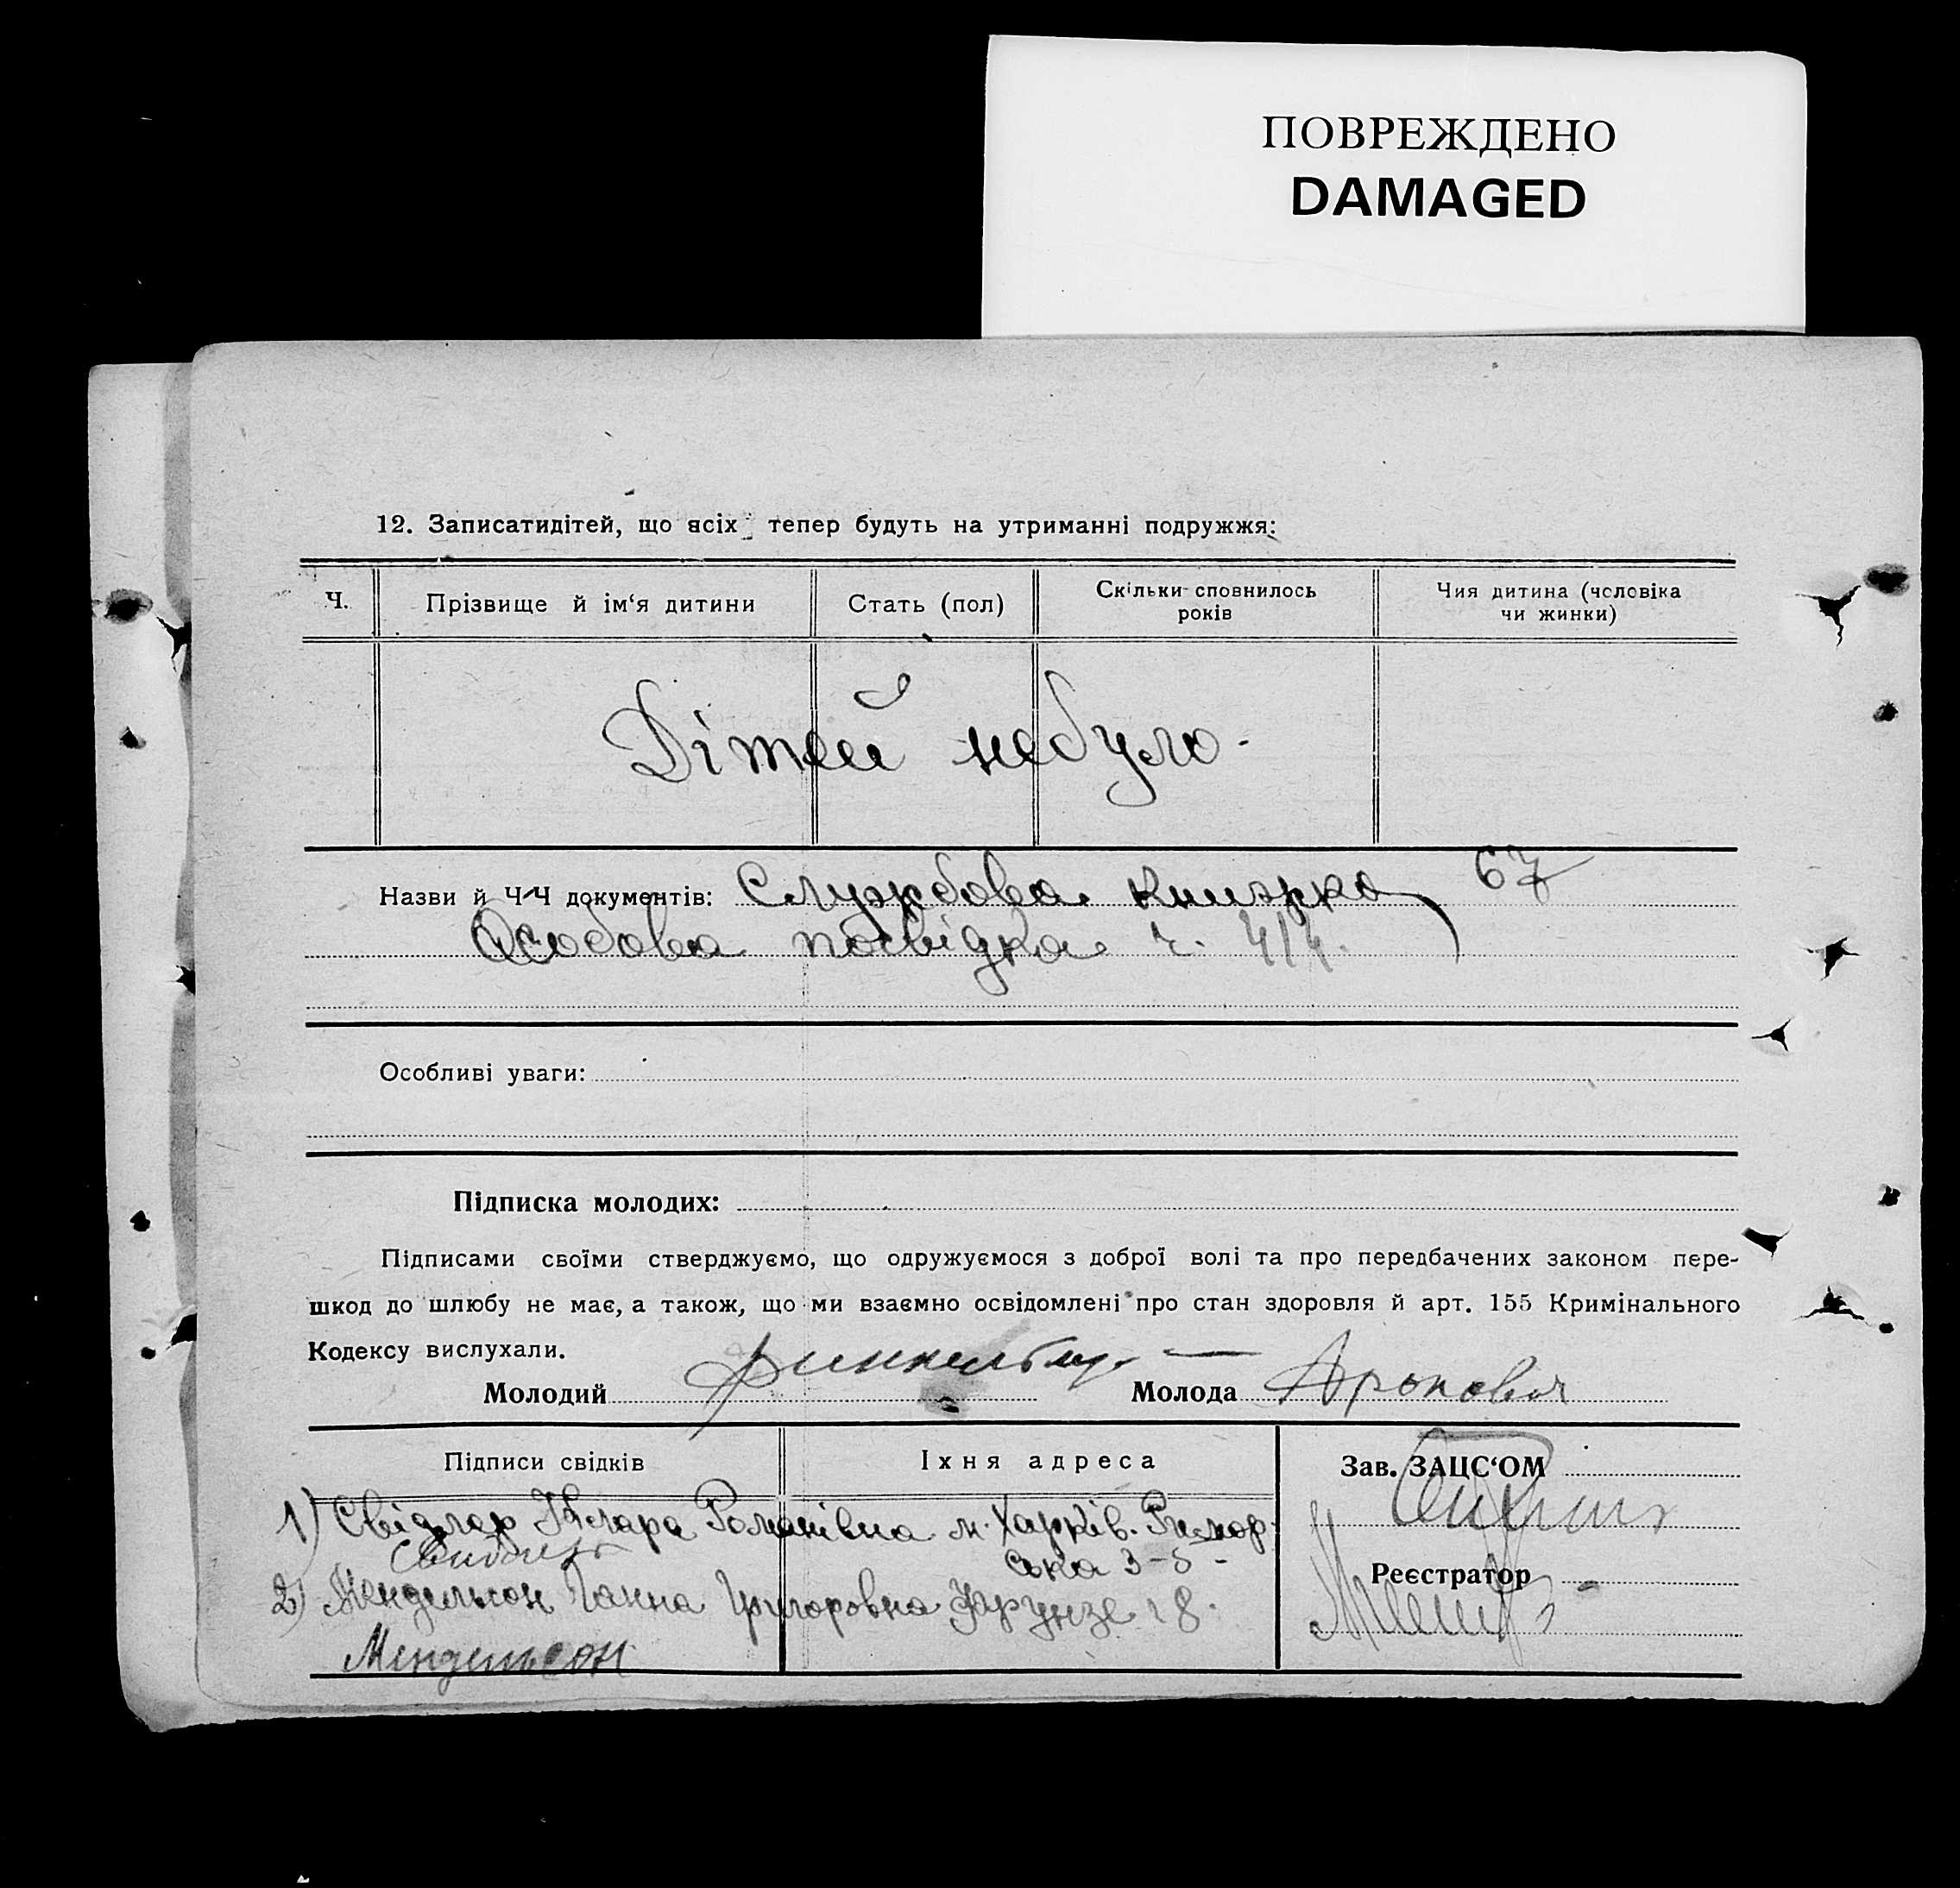 ПОВРЕЖДЕНО
DAMAGED
12. Записатидітей, що всіх тепер будуть на утриманні подружжя:
Ч.
Прізвище й ім‘я дитини
Стать (пол)
Скільки сповнилось
років
Чия дитина (чоловіка
чи жинки)
Дітей небуло.
Назви й Ч-Ч документів: Службова книжка 67
Особова посвідка ч. 414.
Особливі уваги:
Підписка молодих:
Підписами своїми стверджуємо, що одружуємося з доброї волі та про передбачених законом пере-
шкод до шлюбу не має, а також, що ми взаємно освідомлені про стан здоровля й арт. 155 Кримінального
Кодексу вислухали.
Молодий
Молода
Підписи свідків
Їхня адреса
Зав. ЗАЦС‘ОМ
1) Свідлер Клара Романівна м. Харків. Римор.
ська 3-5-
Реєстратор
2) Мендельсон Ганна Григоровна Фрунзе 18.
Мендельсон